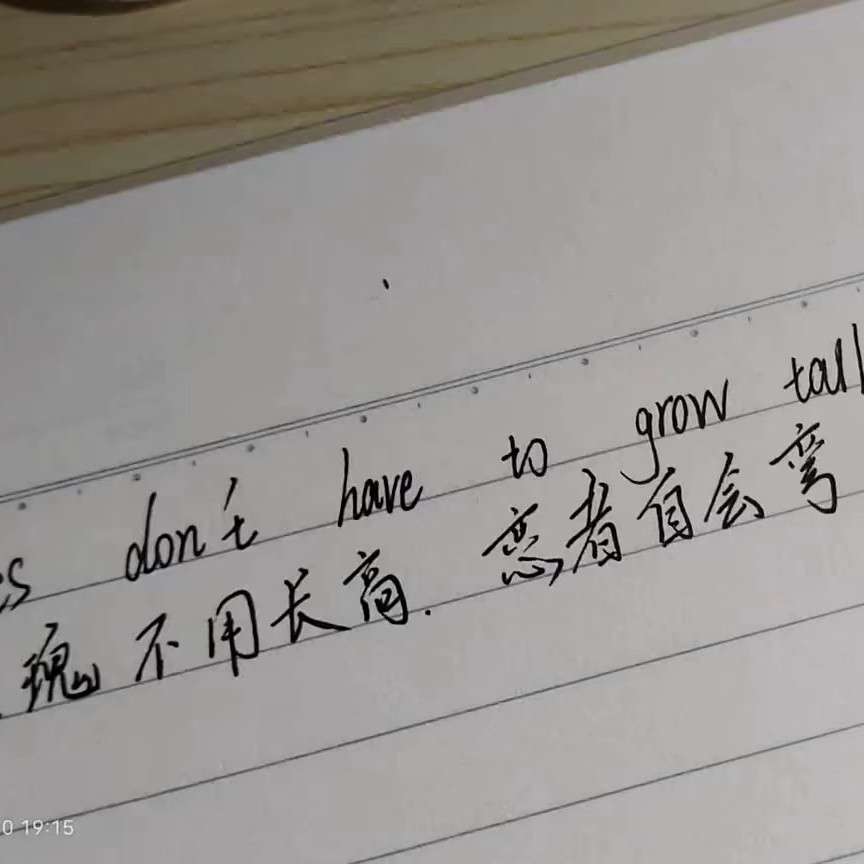 don't have to grow tall
瑰不用长高.恋者自会弯
19:15